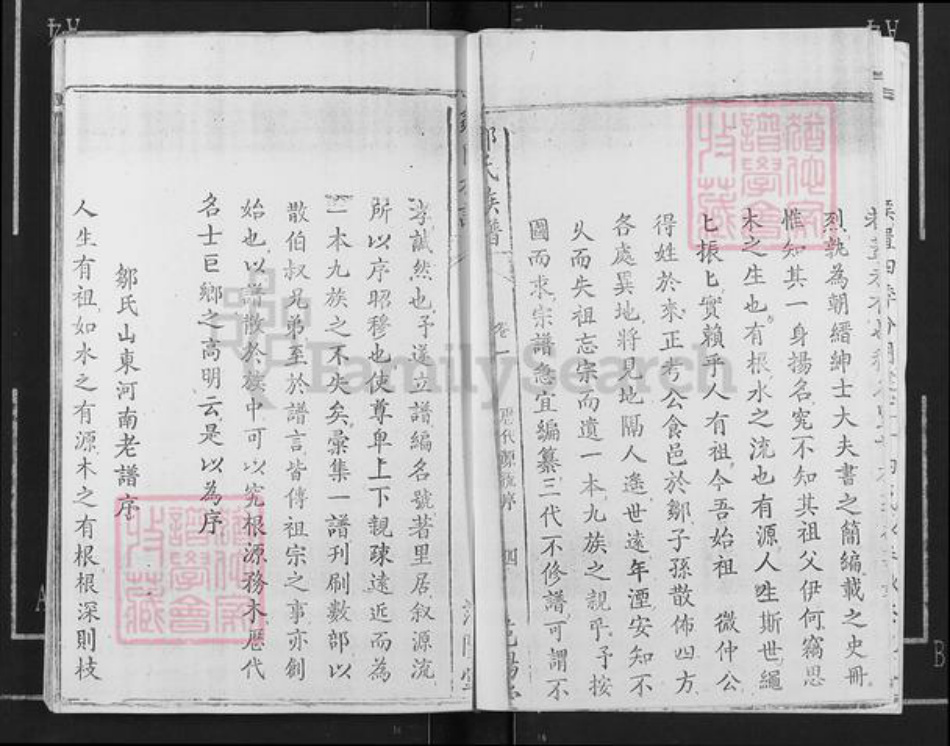 列執為朝縉紳士大夫書之簡編載之史冊
惟知其一身揚名究不知其祖父伊何竊思
木之生也有根水之流也有源人生斯世繩
匕振匕實賴乎人有祖今吾始祖 微仲公
得姓於來正考公食邑於鄒子孫散佈四方
各處異地將見地隔人遙世遠年湮安知不
久而失祖忘宗而遺一本九族之親乎予按
圖而求宗譜急宜編纂三代不修譜可謂不
鄒氏族譜 卷一 歷代源流序 四 范陽堂
孝誠然也予遂立譜編名號著里居叙源流
所以序昭穆也使尊卑上下親疎遠近而為
一本九族之不失矣彙集一譜刊刷數部以
散伯叔兄弟至於譜言皆傳祖宗之事亦創
始也以譜散於族中可以究根源務本歷代
名士巨鄉之高明云是以為序
鄒氏山東河南老譜序
人生有祖如水之有源木之有根根深則枝
猶他家譜學會收藏
猶他家譜學會收藏
FamilySearch